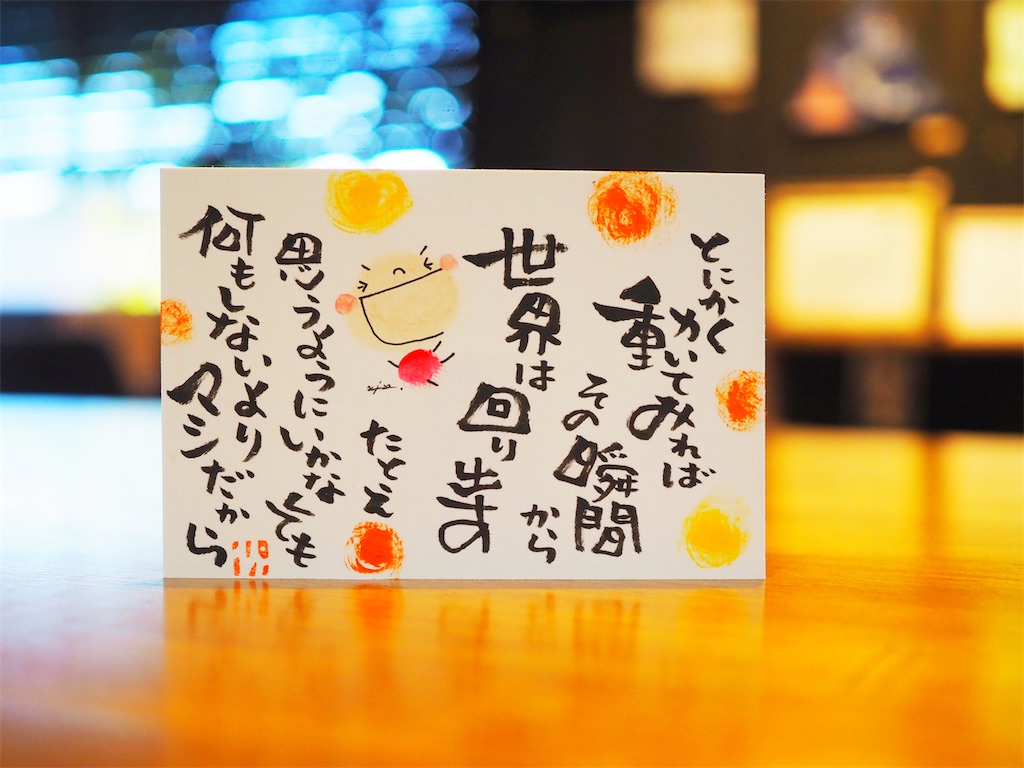 とにかく
動いてみれば
その瞬間
から
世界は回り出す
たとえ
思うようにいかなくても
何もしないより
マシだから